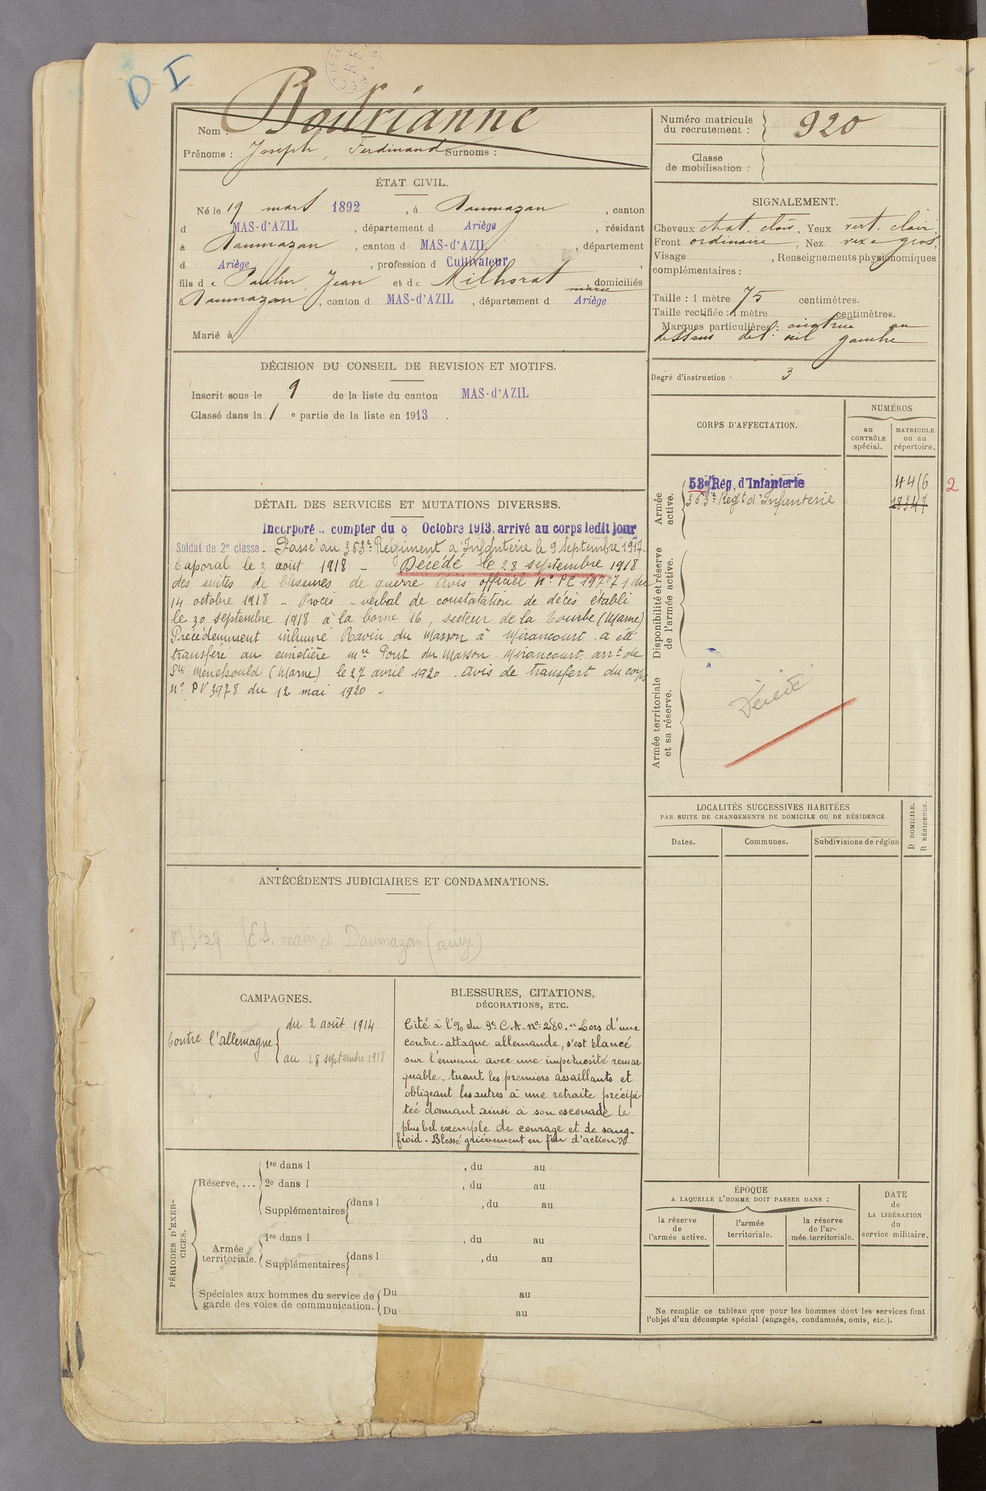 D I
Nom : Bourianne
Prénoms : Joseph, Ferdinand Surnoms :
Numéro matricule
du recrutement : 920
Classe
de mobilisation :
ÉTAT CIVIL.
Né le 19 mars 1892, à Daumazan, canton
d MAS-d'AZIL, département d Ariège, résidant
à Daumazan, canton d MAS-d'AZIL, département
d Ariège, profession d Cultivateur,
fils de Paulin, Jean et de Milhorat domiciliés
à Daumazan, canton d MAS-d'AZIL, département d Ariège
Marié à
SIGNALEMENT.
Cheveux chat. clair, Yeux vert. clair
Front ordinaire, Nez gros,
Visage , Renseignements physionomiques
complémentaires :
Taille : 1 mètre 75 centimètres.
Taille rectifiée : 1 mètre centimètres.
Marques particulières : cicatrice au
dessous de l'œil gauche
Degré d'instruction : 3
DÉCISION DU CONSEIL DE REVISION ET MOTIFS.
Inscrit sous le n° 9 de la liste du canton MAS-d'AZIL
Classé dans la 1e partie de la liste en 1913.
CORPS D'AFFECTATION.
NUMÉROS
au
CONTRÔLE
spécial.
MATRICULE
ou au
répertoire.
Armée
active.
53e Rég. d'Infanterie 4416 2
363e Régt d'Infanterie 18347
Disponibilité et réserve
de l'armée active.
Armée territoriale
et sa réserve.
Décédé
DÉTAIL DES SERVICES ET MUTATIONS DIVERSES.
Incorporé à compter du 8 Octobre 1913, arrivé au corps ledit jour
Soldat de 2e classe. Passé au 363e Régiment d'Infanterie le 9 septembre 1917.
Caporal le 3 août 1918 - Décédé le 28 septembre 1918
des suites de blessures de guerre avis officiel N° PC 19707 du
14 octobre 1918 - Procès-verbal de constatation de décès établi
le 30 septembre 1918 à la borne 16, secteur de la Tourbe (Marne)
Précédemment inhumé Ravin du Masson à Minaucourt a été
transféré au cimetière mre Pont du Masson Minaucourt arrt de
Ste Menehould (Marne) le 27 avril 1920. Avis de transfert du corps
N° PV 3978 du 12 mai 1920 -
LOCALITÉS SUCCESSIVES HABITÉES
PAR SUITE DE CHANGEMENTS DE DOMICILE OU DE RÉSIDENCE
Dates.
Communes.
Subdivisions de région
D DOMICILE.
R RÉSIDENCE.
ANTÉCÉDENTS JUDICIAIRES ET CONDAMNATIONS.
Daumazan (Ariège)
CAMPAGNES.
Contre l'Allemagne
du 2 août 1914
au 28 septembre 1918
BLESSURES, CITATIONS,
DÉCORATIONS, ETC.
Cité à l'o/ du 9e C.A. n° 280. "Lors d'une
contre-attaque allemande, s'est élancé
sur l'ennemi avec une impétuosité remar
quable, tuant les premiers assaillants et
obligeant les autres à une retraite précipi-
tée donnant ainsi à son escouade le
plus bel exemple de courage et de sang-
froid. Blessé grièvement en fin d'action"
PÉRIODES D'EXER-
CICES.
Réserve, ...
1re dans l , du au
2e dans l , du au
Supplémentaires dans l , du au
Armée
territoriale.
1re dans l , du au
Supplémentaires dans l , du au
Spéciales aux hommes du service de
garde des voies de communication.
Du au
Du au
ÉPOQUE
A LAQUELLE L'HOMME DOIT PASSER DANS :
la réserve
de
l'armée active.
l'armée
territoriale.
la réserve
de l'ar-
mée territoriale.
DATE
de
LA LIBÉRATION
du
service militaire.
Ne remplir ce tableau que pour les hommes dont les services font
l'objet d'un décompte spécial (engagés, condamnés, omis, etc.).